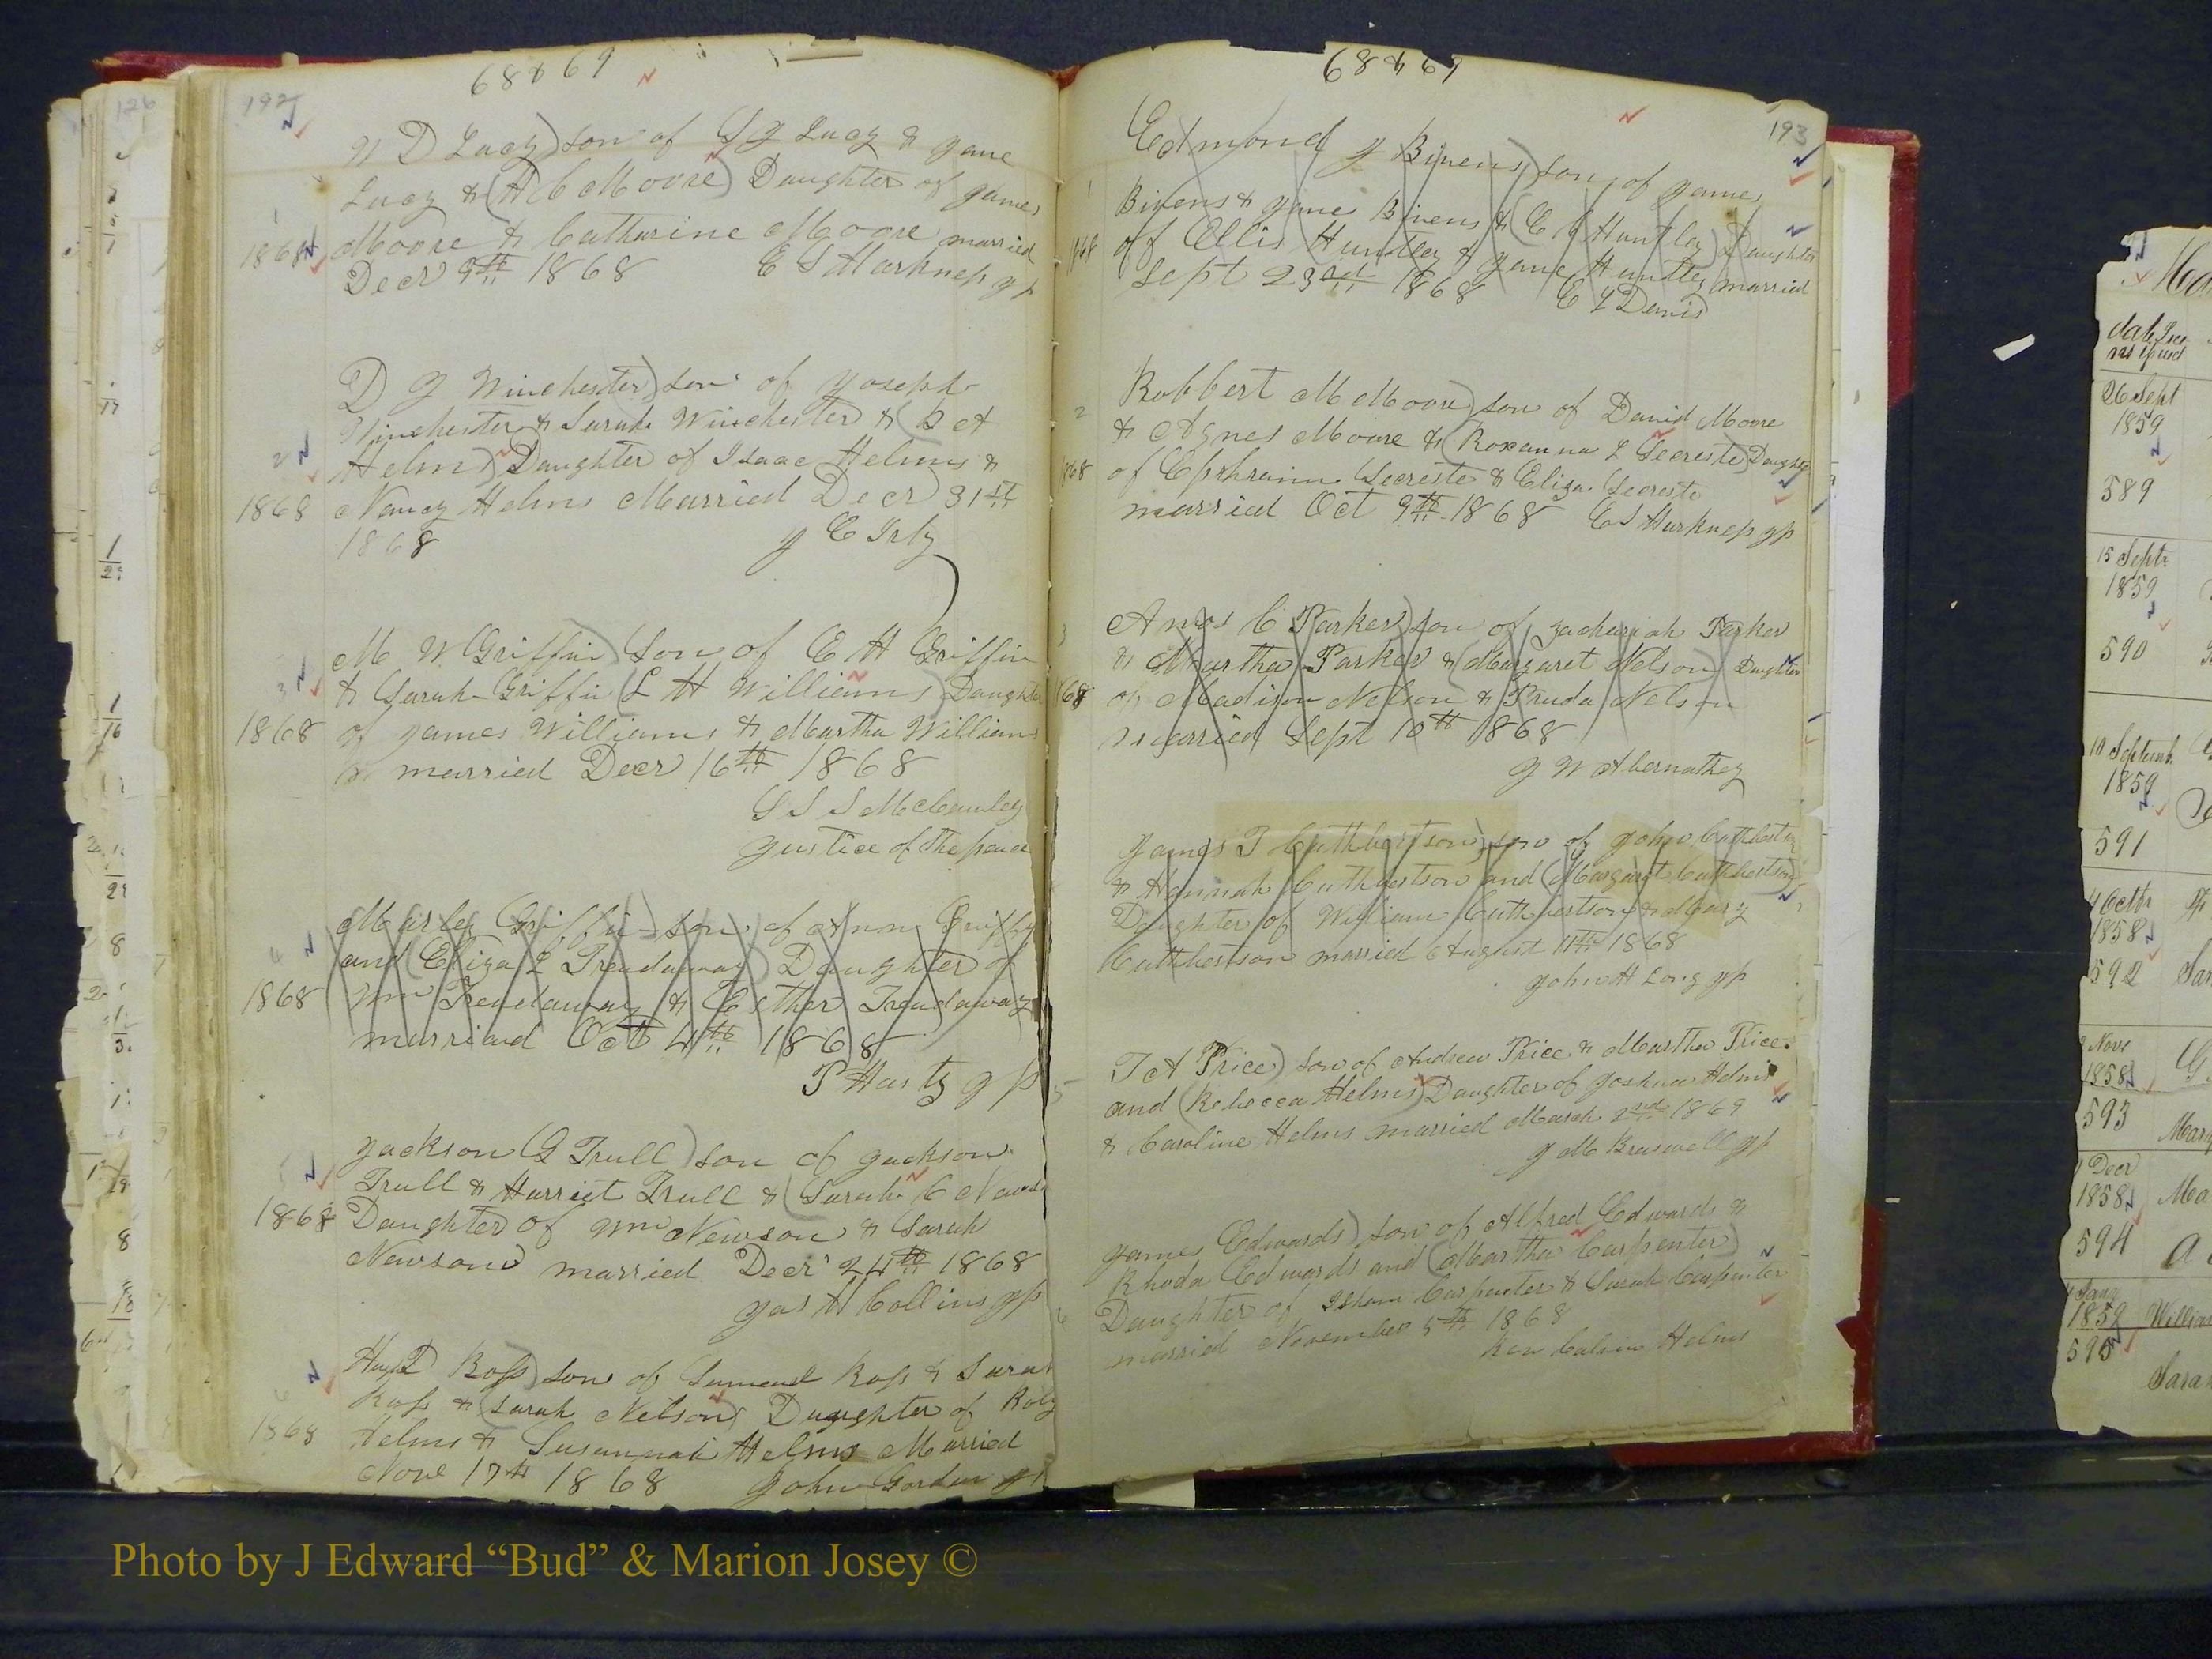 68 & 69
192
N D Lucy) son of S J Lucy & Jane
Lucy & (A C Moore) Daughter of James
1
1868 Moore & Catharine Moore married
Decr 9th 1868 E S Harkness Jp
D J Winchester) son of Joseph
Winchester & Sarah Winchester & (B A
2
Helms) Daughter of Isaac Helms &
1868 Nancy Helms Married Decr 31st
1868 J E Irby
M W Griffin) Son of E H Griffin
3
& Sarah Griffin (L H Williams) Daughter
1868 of James Williams & Martha Williams
married Decr 16th 1868
S S S McCauley
Justice of the peace
Marley Griffin son of Amon Griffin
4
and (Eliza L Treadaway) Daughter of
1868 Wm Treadaway & Esther Treadaway
marriand Oct 4th 1868
P Hasty J P
Jackson G Trull) son of Jackson
5
Trull & Harriet Trull & (Sarah C
1868 Daughter of Wm Newson & Sarah
Newson married Decr 24th 1868
Jas H Collins Jp
Hugh Ross) son of Samuel Ross & Sarah
6
Ross & (Sarah Nelson) Daughter of Roly
1868 Helms & Susannah Helms Married
Nove 17th 1868 John Gordon Jp
68 & 69
193
Edmond J Bivens) son of James
1
Bivens & Jane Bivens & (E C Huntley) Daughter
1868 of Ellis Huntley & Jane Huntley married
Sept 23rd 1868 E Y Davis
Robbert M Moore) son of David Moore
2
& Agnes Moore & (Roxanna L Secreste) Daughter
1868 of Ephraim Secreste & Eliza Secreste
married Oct 9th 1868 E S Harkness Jp
Amos C Parker) son of Zachariah Parker
3
& Martha Parker & (Margaret Nelson) Daughter
68 of Madison Nelson & Pruda Nelson
married Sept 10th 1868
J W Abernathey
James T Cuthbertson) son of John Cuthbertson
& Hannah Cuthbertson and (Margaret Cuthbertson)
Daughter of William Cuthbertson & Mary
Cuthbertson married August 11th 1868
John H Long Jp
T A Price) son of Andrew Price & Martha Price
5
and (Rebecca Helms) Daughter of Joshua Helms
& Caroline Helms married March 2nd 1869
J M Braswell Jp
James Edwards) son of Alfred Edwards &
Rhoda Edwards and (Martha Carpenter)
6
Daughter of Isham Carpenter & Sarah Carpenter
married November 5th 1868
Rev Calvin Helms
126
date
26 Sept
1859
589
15 Septr
1859
590
1859
591
4 Octr
1858
592 Sar
Nove
1858
593 Mar
1 Decr
1858 Ma
594
1859 William
595
Sara
Photo by J Edward “Bud” & Marion Josey ©